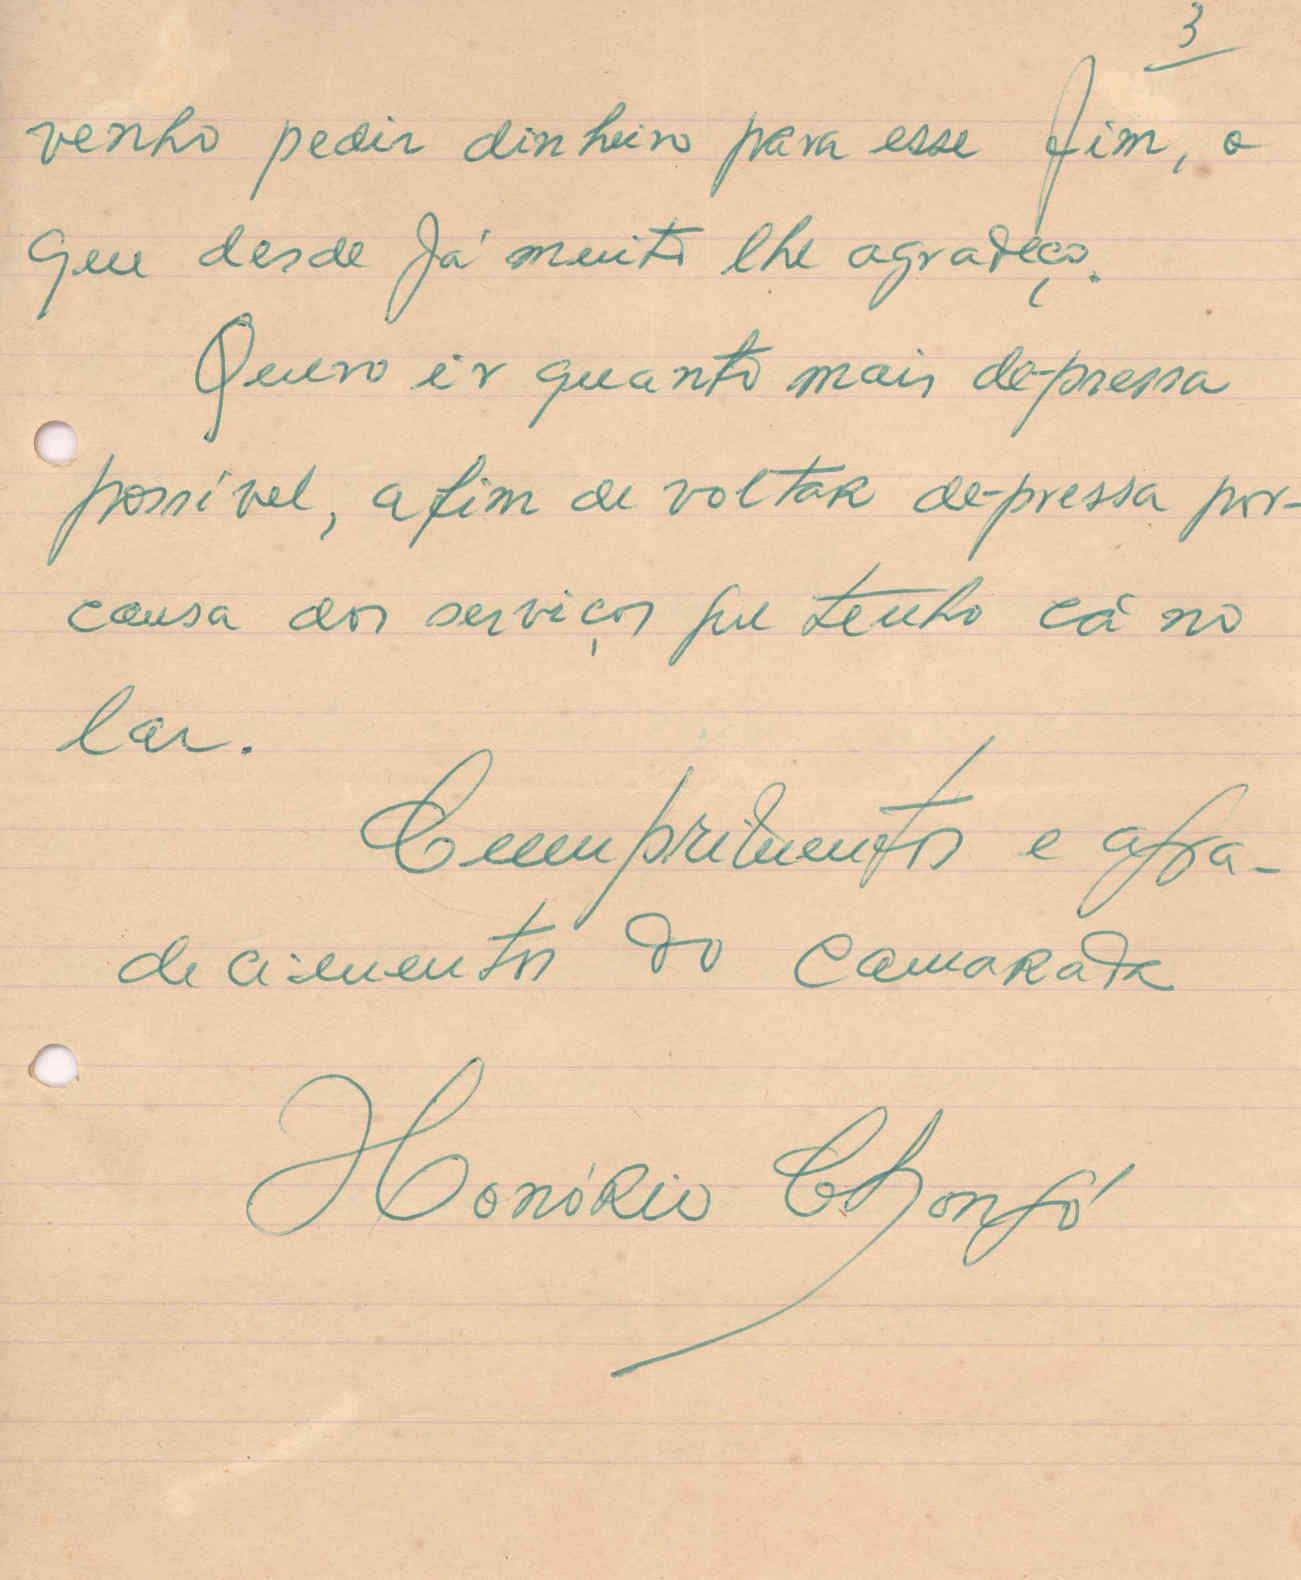 3
venho pedir dinheiro para esse fim, o
que desde já muito lhe agradeço.
Quero ir quanto mais de-pressa
possível, afim de voltar de-pressa por-
causa dos serviços que tenho cá no
lar.
Cumprimentos e agra-
decimentos do camarada
Honório Chonfó